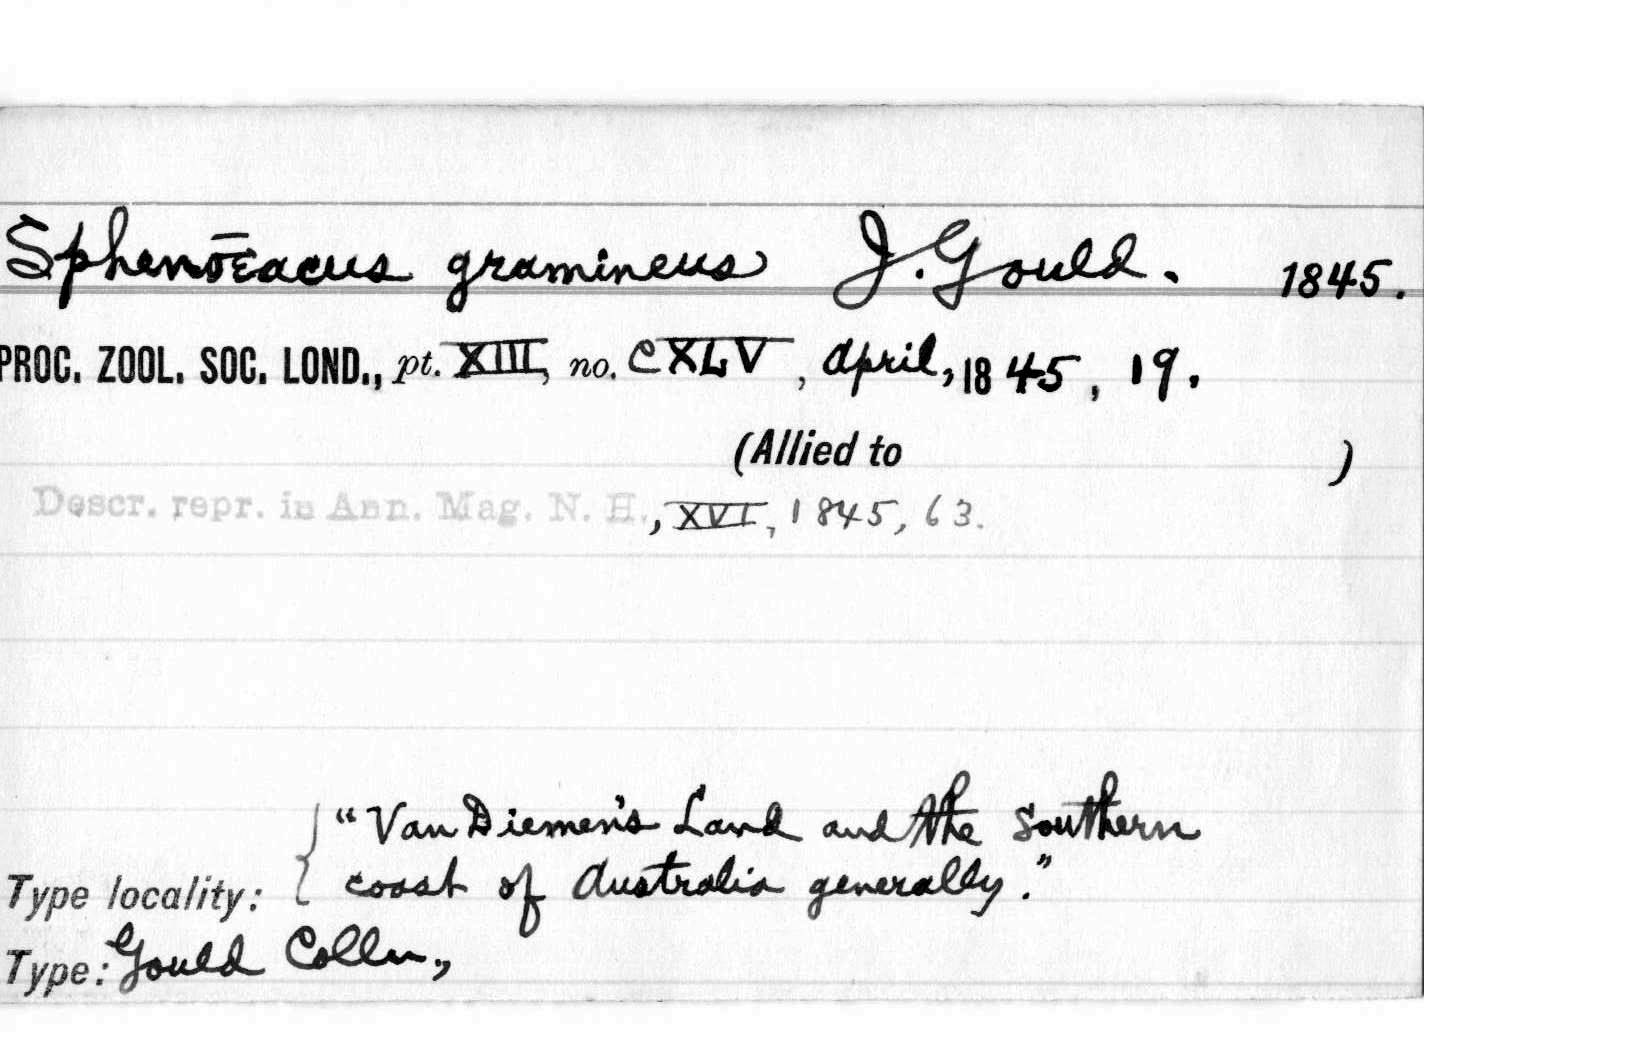 Sphenōeacus gramineus J. Gould. 1845.
PROC. ZOOL. SOC. LOND., pt. XIII, no. CXLV, April, 1845, 19.
(Allied to )
Descr. repr. in Ann. Mag. N. H., XVI, 1845, 63.
"Van Diemen's Land and the Southern
Type locality: { coast of Australia generally."
Type: Gould Colln.,